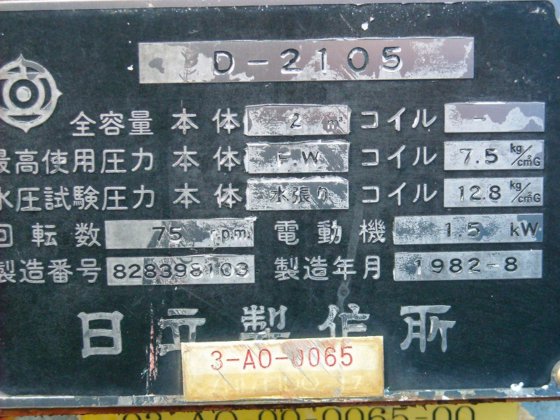 D-2105
全容量 本体 2 m³ コイル -
最高使用圧力 本体 F.W. コイル 7.5 kg/cm²G
水圧試験圧力 本体 水張り コイル 12.8 kg/cm²G
回転数 75 r.p.m. 電動機 15 kW
製造番号 828398103 製造年月 1982-8
日立製作所
3-AO-0065
03-AO-00-0065-00